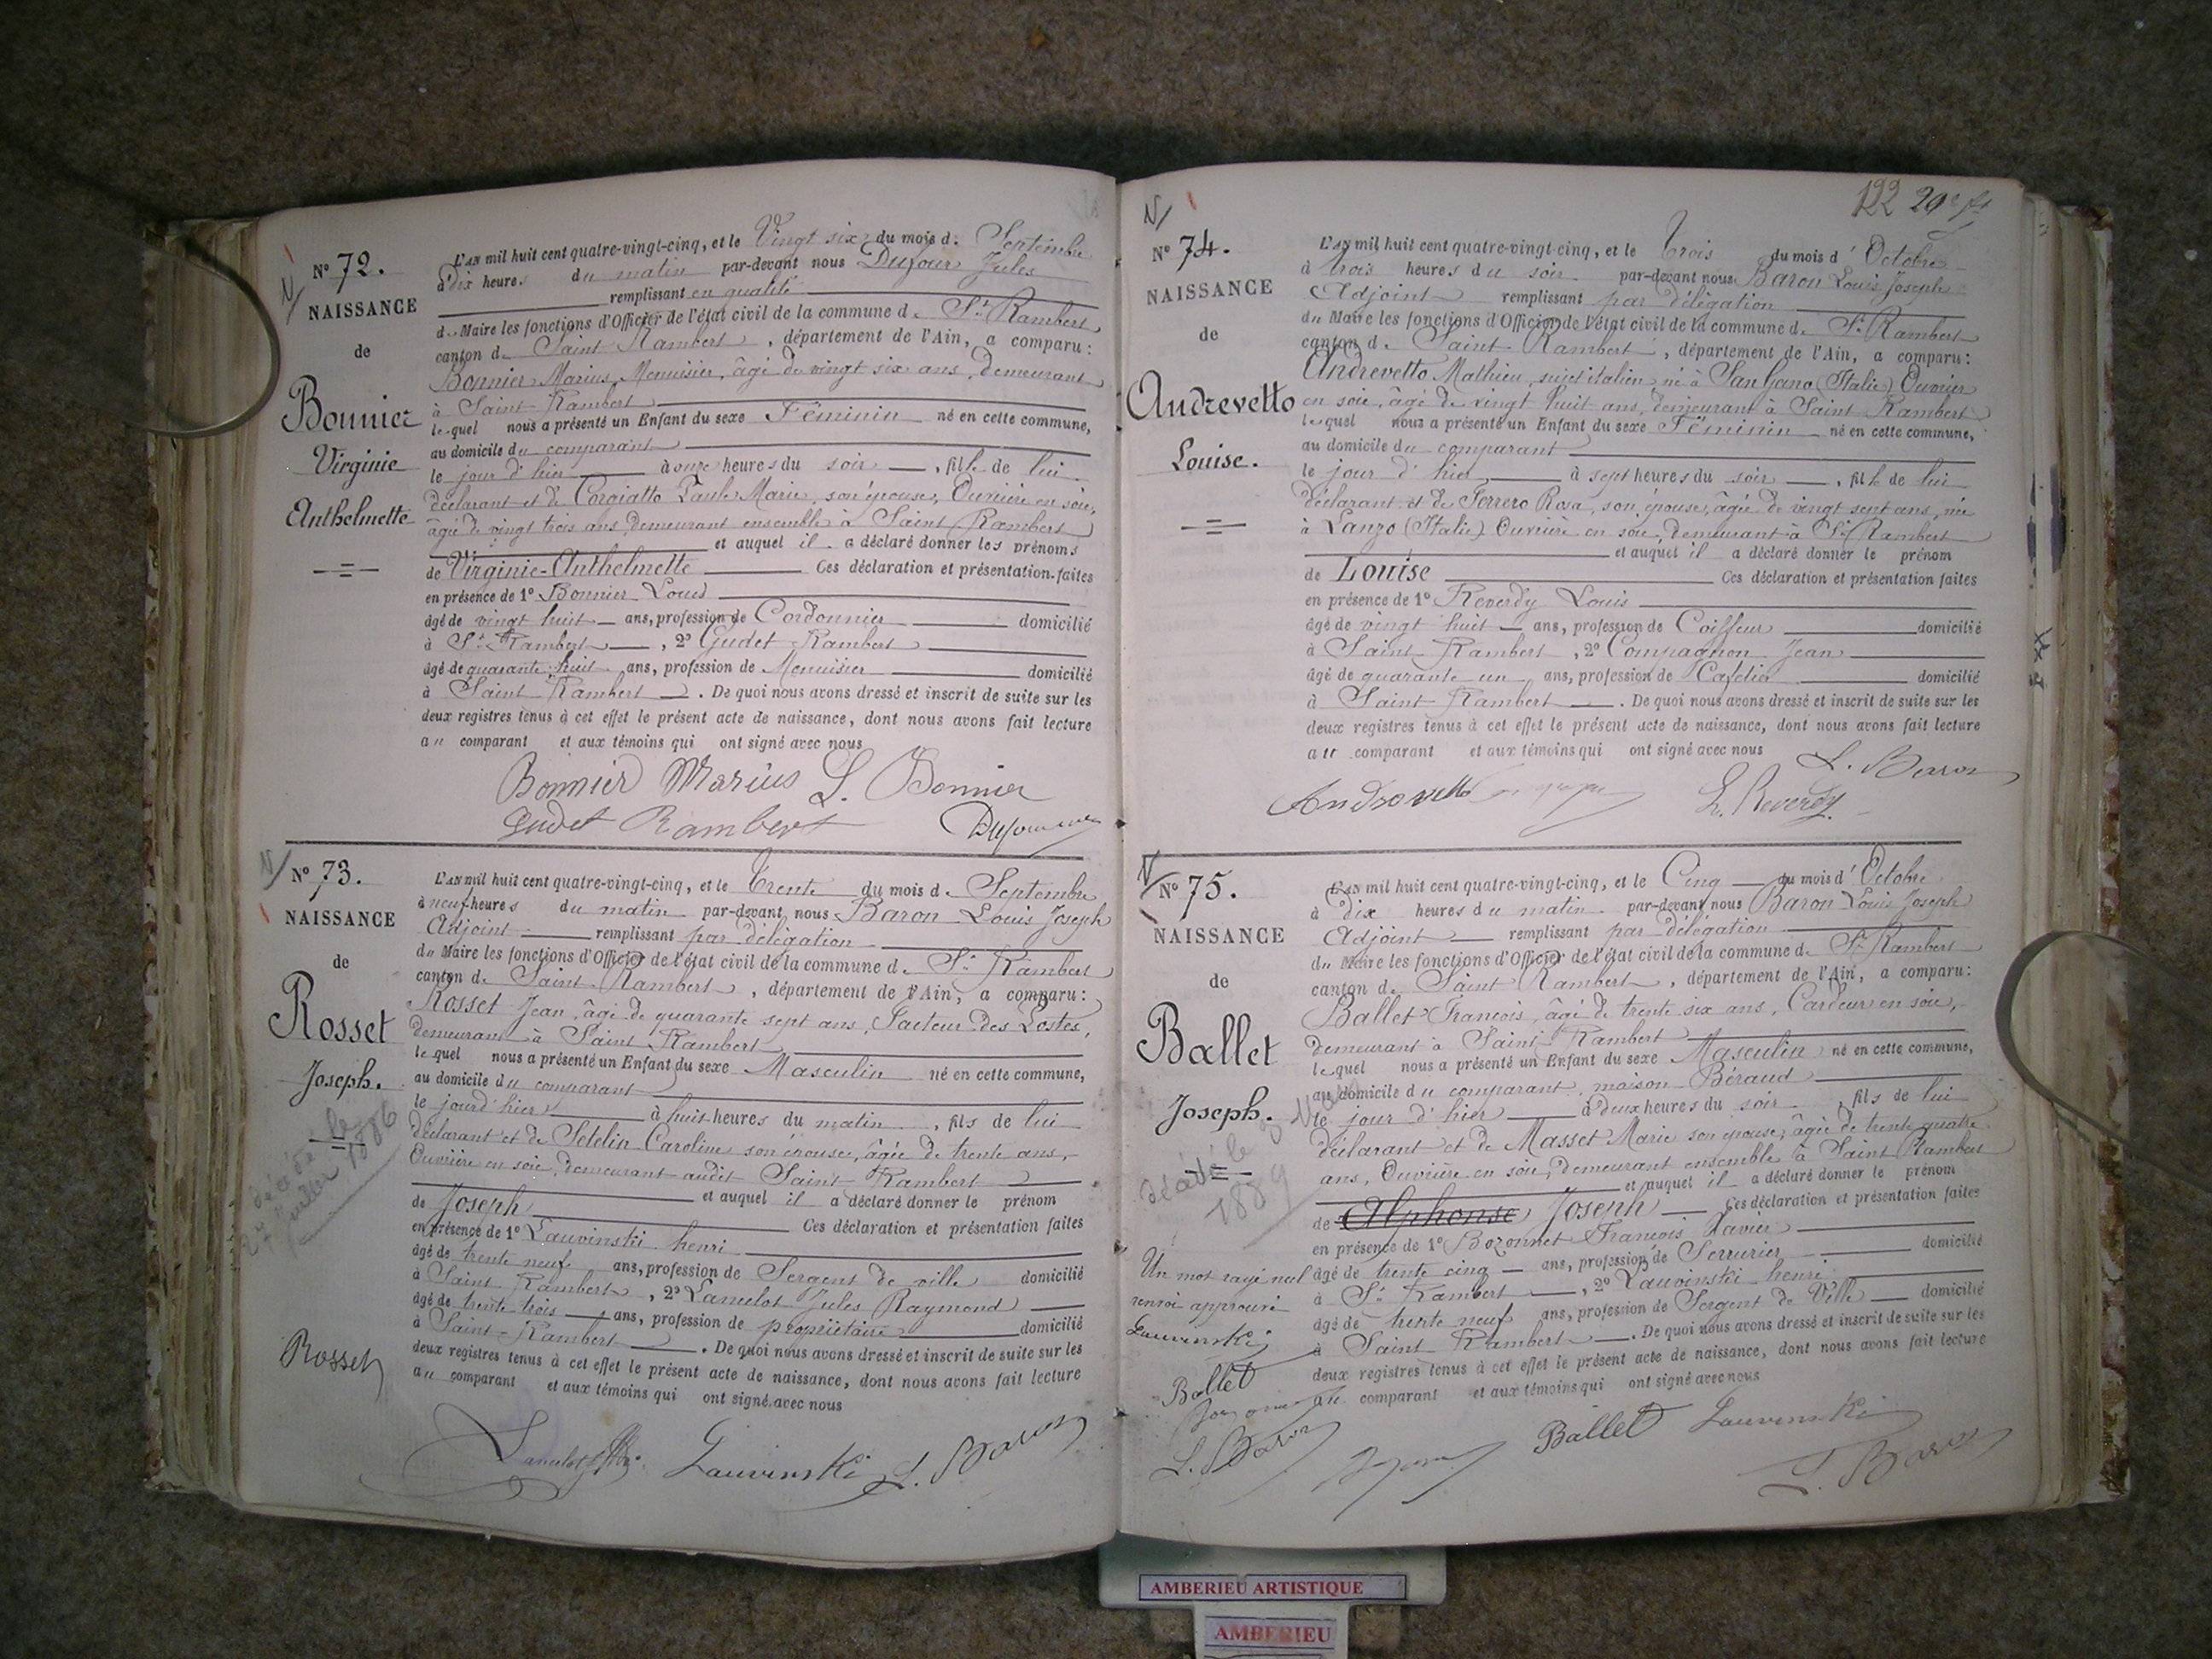 N° 72.
NAISSANCE
de
Bonnier
Virginie
Anthelmette
L'AN mil huit cent quatre-vingt-cinq, et le Vingt six du mois de Septembre
à dix heures du matin par-devant nous Dufour Jules
remplissant en qualité
de Maire les fonctions d'Officier de l'état civil de la commune de St Rambert
canton de Saint Rambert, département de l'Ain, a comparu :
Bonnier Marius, Menuisier, âgé de vingt six ans, demeurant
à Saint-Rambert
lequel nous a présenté un Enfant du sexe Féminin né en cette commune,
au domicile du comparant
le jour d'hier à onze heures du soir, fille de lui
déclarant et de Corgiatto Paule Marie, son épouse, Ouvrière en soie,
âgée de vingt trois ans, demeurant ensemble à Saint Rambert
et auquel il a déclaré donner les prénoms
de Virginie-Anthelmette Ces déclaration et présentation faites
en présence de 1° Bonnier Louis
âgé de vingt huit ans, profession de Cordonnier domicilié
à St Rambert, 2° Gudet Rambert
âgé de quarante huit ans, profession de Menuisier domicilié
à Saint Rambert. De quoi nous avons dressé et inscrit de suite sur les
deux registres tenus à cet effet le présent acte de naissance, dont nous avons fait lecture
au comparant et aux témoins qui ont signé avec nous
Bonnier Marius L. Bonnier
Gudet Rambert Dufour
N° 73.
NAISSANCE
de
Rosset
Joseph.
décédé le
27 juillet 1886
Rosset
L'AN mil huit cent quatre-vingt-cinq, et le Trente du mois de Septembre
à neuf heures du matin par-devant nous Baron Louis Joseph
Adjoint remplissant par délégation
du Maire les fonctions d'Officier de l'état civil de la commune de St Rambert
canton de Saint Rambert, département de l'Ain, a comparu :
Rosset Jean, âgé de quarante sept ans, Facteur des Postes,
demeurant à Saint Rambert
lequel nous a présenté un Enfant du sexe Masculin né en cette commune,
au domicile du comparant
le jour d'hier à huit heures du matin, fils de lui
déclarant et de Caroline son épouse, âgée de trente ans,
Ouvrière en soie, demeurant audit Saint Rambert
et auquel il a déclaré donner le prénom
de Joseph Ces déclaration et présentation faites
en présence de 1° Lauvinski henri
âgé de trente neuf ans, profession de Sergent de ville domicilié
à Saint Rambert, 2° Lancelot Jules Raymond
âgé de trente trois ans, profession de propriétaire domicilié
à Saint-Rambert. De quoi nous avons dressé et inscrit de suite sur les
deux registres tenus à cet effet le présent acte de naissance, dont nous avons fait lecture
au comparant et aux témoins qui ont signé avec nous
Lancelot Lauvinski L. Baron
122
N° 74.
NAISSANCE
de
Andrevetto
Louise.
L'AN mil huit cent quatre-vingt-cinq, et le Trois du mois d'Octobre
à trois heures du soir par-devant nous Baron Louis Joseph
Adjoint remplissant par délégation
du Maire les fonctions d'Officier de l'état civil de la commune de St Rambert
canton de Saint-Rambert, département de l'Ain, a comparu :
Andrevetto Mathieu, sujet italien, né à San Gano (Italie) Ouvrier
en soie, âgé de vingt huit ans, demeurant à Saint Rambert
lequel nous a présenté un Enfant du sexe Féminin né en cette commune,
au domicile du comparant
le jour d'hier à sept heures du soir, fille de lui
déclarant et de Ferrero Rosa, son épouse, âgée de vingt sept ans, née
à Lanzo (Italie) Ouvrière en soie, demeurant à St Rambert
et auquel il a déclaré donner le prénom
de Louise Ces déclaration et présentation faites
en présence de 1° Reverdy Louis
âgé de vingt huit ans, profession de Coiffeur domicilié
à Saint Rambert, 2° Compagnon Jean
âgé de quarante un ans, profession de Cafetier domicilié
à Saint Rambert. De quoi nous avons dressé et inscrit de suite sur les
deux registres tenus à cet effet le présent acte de naissance, dont nous avons fait lecture
au comparant et aux témoins qui ont signé avec nous
L. Baron
L. Reverdy
N° 75.
NAISSANCE
de
Ballet
Joseph.
décédé le
1889
Un mot rayé nul
renvoi approuvé
Lauvinski
Ballet
L. Baron
L'AN mil huit cent quatre-vingt-cinq, et le Cinq du mois d'Octobre
à dix heures du matin par-devant nous Baron Louis Joseph
Adjoint remplissant par délégation
du Maire les fonctions d'Officier de l'état civil de la commune de St Rambert
canton de Saint Rambert, département de l'Ain, a comparu :
Ballet François, âgé de trente six ans, Cardeur en soie,
demeurant à Saint Rambert
lequel nous a présenté un Enfant du sexe Masculin né en cette commune,
au domicile du comparant, maison Béraud
le jour d'hier à deux heures du soir, fils de lui
déclarant et de Masset Marie son épouse, âgée de trente quatre
ans, Ouvrière en soie, demeurant ensemble à Saint Rambert
et auquel il a déclaré donner le prénom
de Alphonse Joseph Ces déclaration et présentation faites
en présence de 1° Bozonnet François Xavier
âgé de trente cinq ans, profession de Serrurier domicilié
à St Rambert, 2° Lauvinski henri
âgé de trente neuf ans, profession de Sergent de Ville domicilié
à Saint Rambert. De quoi nous avons dressé et inscrit de suite sur les
deux registres tenus à cet effet le présent acte de naissance, dont nous avons fait lecture
au comparant et aux témoins qui ont signé avec nous
Ballet Lauvinski
L. Baron
AMBERIEU ARTISTIQUE
AMBERIEU